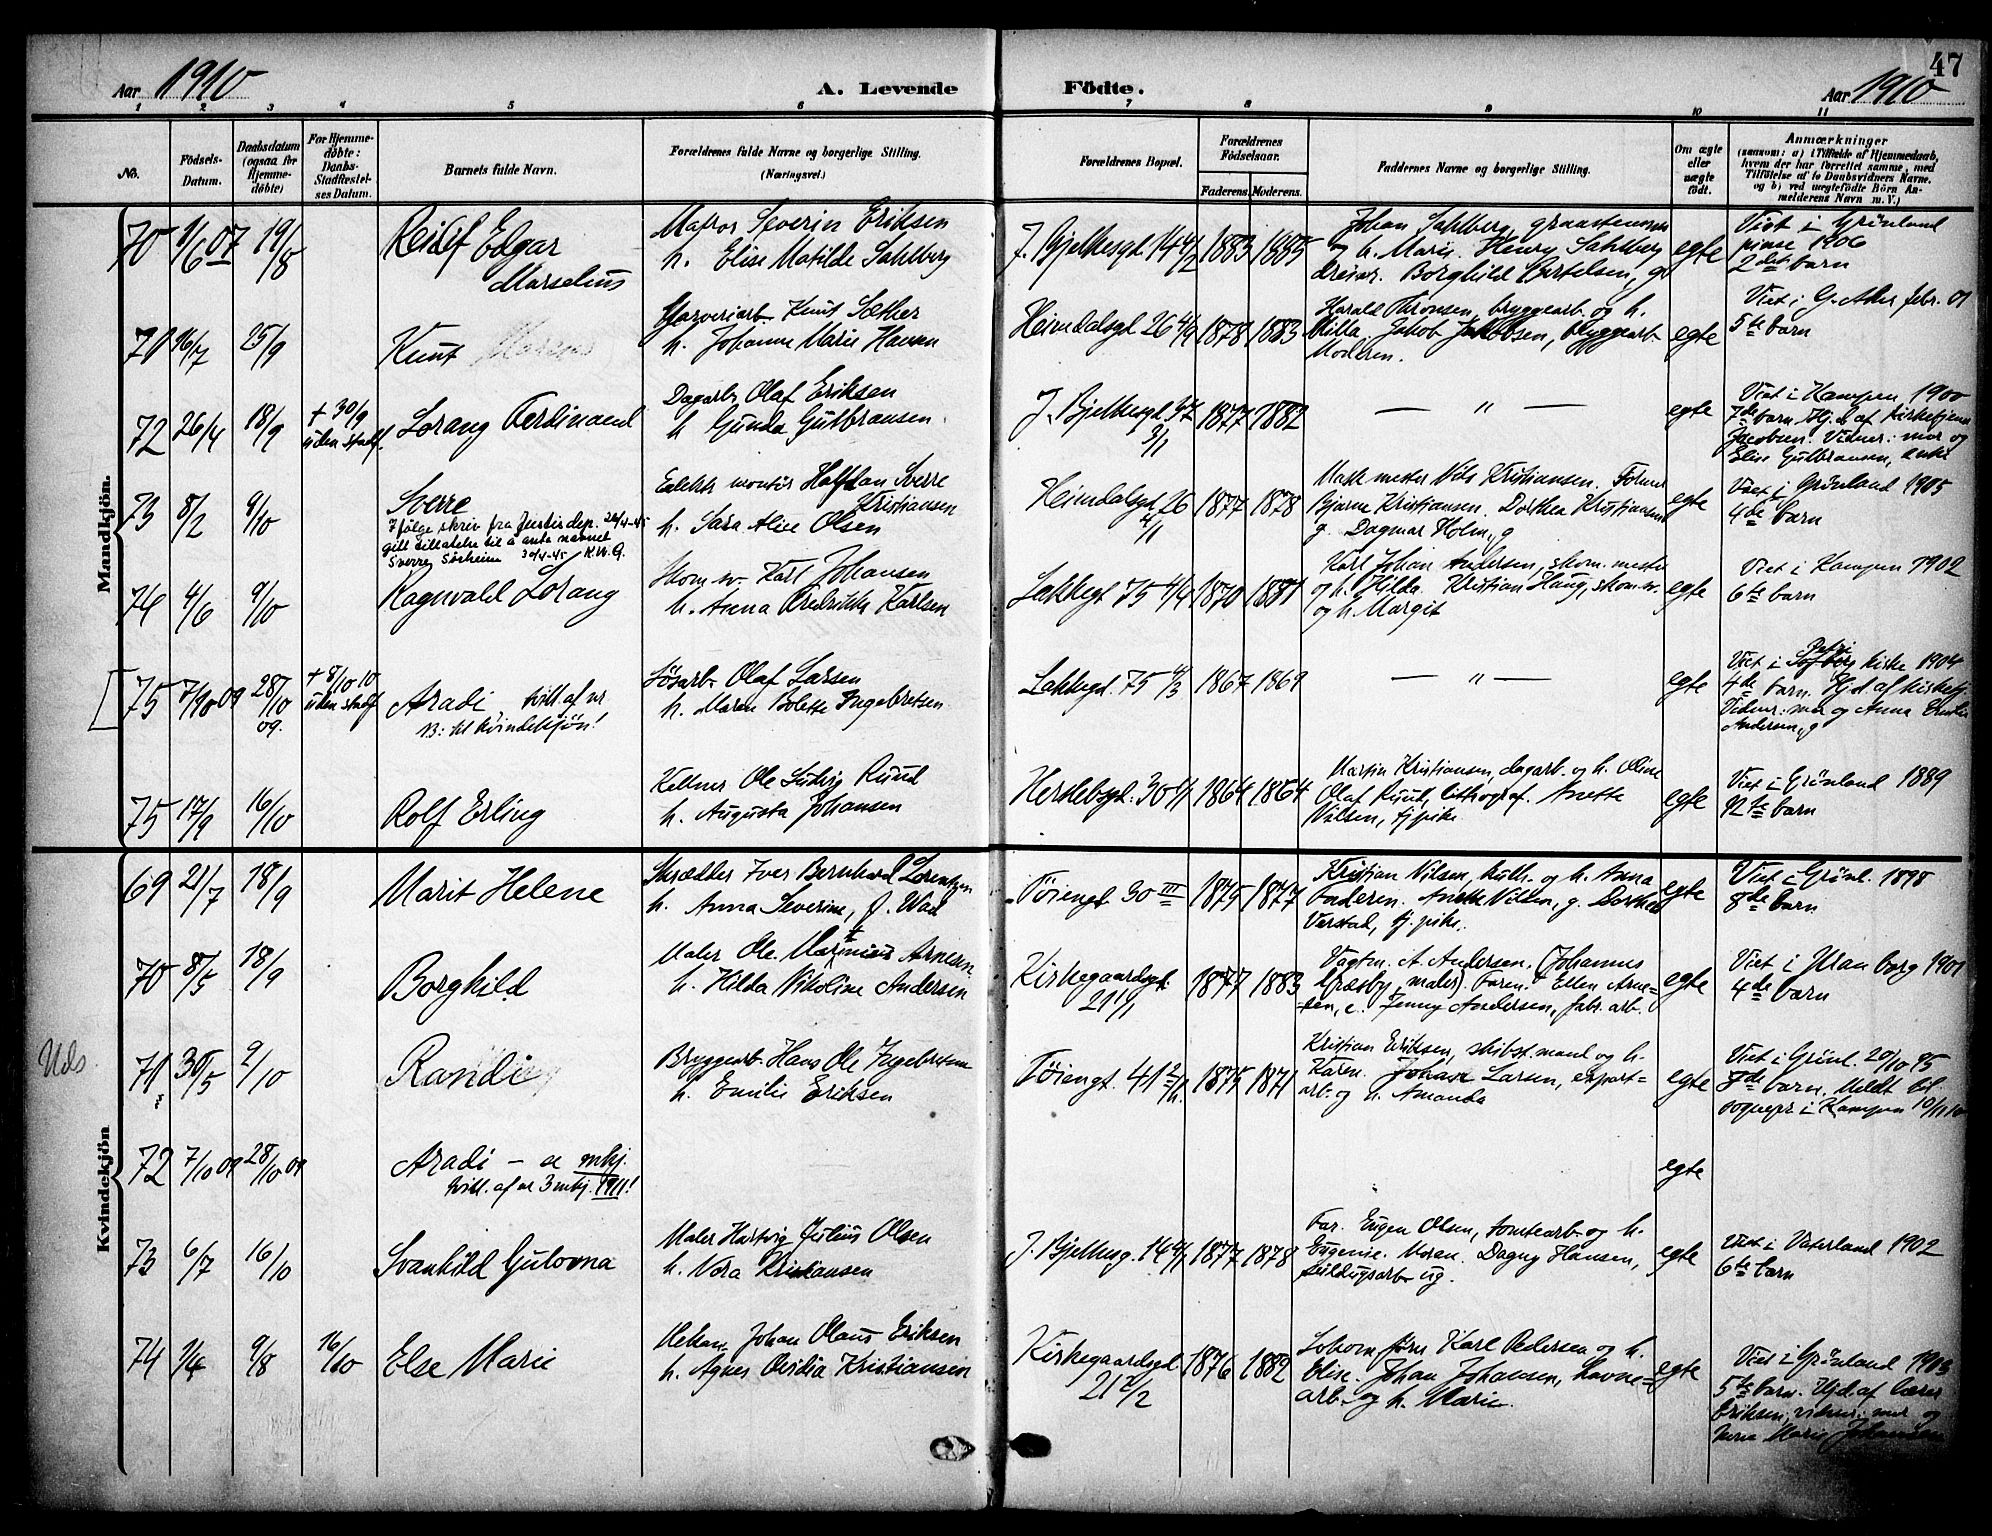 47
Aar 1910
A. Levende
Födte.
Aar 1910
1 2 3 4 5 6 7 8 9 10 11
No.
Födsels-Datum.
Daabsdatum (ogsaa for Hjemme-döbte)
For Hjemme-döbte: Daabs-Stadfæstel-ses Datum.
Barnets fulde Navn.
Forældrenes fulde Navne og borgerlige Stilling.
(Næringsvei.)
Forældrenes Bopæl.
Forældrenes Födselsaar.
Faderens. Moderens.
Faddernes Navne og borgerlige Stilling.
Om ægte eller uægte födt.
Anmærkninger
(saasom: a) i Tilfælde af Hjemmedaab,
hvem der har forrettet samme, med
Tilföielse af to Daabsvidners Navne.
og b) ved uægtefödte Börn An-
melderens Navn m. V.)
Mandkjön.
70 1/6 07 19/8 Reidf Edgar
Marselius
Matros Severin Eriksen
h. Elise Matilde Sahlberg
J. Bjelkesgt 14 4/2 1883 1885
Johan Sahlberg, graastensm
og h. Marie. Henry Sahlberg
dreier. Borghild Bertelsen, g
egte
Viet i Grönland
pinse 1906
2det barn
71 16/7 25/9 Knut
Garveriarb. Knut Sæther
h. Johanne Marie Hansen
Heimdalsgt 26 4/9 1878 1883
Harald Thronsen, bryggearb. og h.
Milla. Jakob Jakobsen, bryggearb.
Moderen.
egte
Viet i G. Aker febr. 01
5te barn
72 26/4 18/9 + 30/9
uden stadf.
Lorang Ferdinand
Dagarb. Olaf Eriksen
h Gunda Gulbransen.
J. Bjelkesgt 37
3/1
1877 1882
— " —
egte
Viet i Kampen 1900
7de barn. Hjd. af Kirketjener
Jacobsen. Vidner: mor og
Elise Gulbransen, enke
73 8/2 9/10 Sverre
Ifølge skriv fra Justisdep. 24/4-45
gitt tillatelse til å anta navnet
Sverre Sörheim 30/4-45 K.W.G.
Elektr. montör Halfdan Sverre
Kristiansen
h. Sara Alise Olsen
Heimdalsgt 26
4/1
1877 1878
Mask. mester Nils Kristiansen.
Bjarne Kristiansen. Dorthea Kristiansen
g. Dagmar Holm, g
egte
Viet i Grönland 1905
4de barn
74 4/6 9/10 Ragnvald Lorang
Skom. sv. Karl Johansen
h. Anna Fredrikke Karlsen
Lakkegt 75 4/4 1870 1881
Karl Johan Andersen, skom. mester
og h. Hilda. Kristian Haug, skom. sv.
og h. Margit
egte
Viet i Kampen 1902
6te barn
75 7/10 09 28/10 09. + 8/10 10
uden stadf
Aradi, tvill. af nr
B: til Kvindekjön!
Löisarb. Olaf Larsen
h. Maren Bolette Ingebretsen
Lakkegt. 75 4/3 1867 1869
— " —
egte
Viet i Petri kirke 1904
4de barn. Hjd. af kirketj.
Vidner: mor og Anna Emilie
Andersen, g
75 17/9 16/10 Rolf Erling
Kelner Ole Ludvig Ruud
h. Augusta Johansen
Herslebsgt: 30 4/1 1864 1864
Martin Kristiansen, dagarb. og h. Oline
Olaf Ruud, lithograf. Anette
Nilsen, tj. pike
egte
Viet i Grönland 1889
12te barn
Kvindekjön
69 21/7 18/9 Marit Helene
Skrædder Iver Bernhard Lorentzen
h. Anna Severine, f. Wad
Töiengt 30 III 1875 1877
Kristian Nilsen, kusk. og h. Anna
Faderen. Anette Nilsen, g. Dorthea
Verstad, tj. pike.
egte
Viet i Grönl. 1898
8de barn
70 8/5 18/9 Borghild
Maler Ole Marinius Arnesen
h. Hilda Nikoline Andersen
Kirkegaardsgt.
21 1/1
1877 1883
Vagtm. A. Andersen. Johannes
Græsby, maler. Faren. Ellen Arne=
sen, e. Jenny Andersen, fabr. arb.
egte
Viet i Uranborg 1901
4de barn
Uds.
71 30/5 2/10 Randi
Bryggearb. Hans Ole Ingebretsen
h. Emilie Eriksen
Töiengt. 41 2/h. 1875 1871
Kristian Eriksen, skibst. mand og h.
Karen. Johan Larsen, export=
arb. og h. Amanda
egte
Viet i Grönl. 20/10 95
8de barn. Meldt til
sogneprs i Kampen 10/11 10
72 7/10 09 28/10 09 Aradi — se mkj.
tvill. af nr 3 mkj. 1911!
egte
73 6/7 16/10 Svanhild Gulovna
Maler Hartvig Julius Olsen
h. Nora Kristiansen
J. Bjelkesg. 14 4/1 1877 1878
Far. Eugen Olsen, tomtearb. og h.
Eugenie. Moren. Dagny Hansen,
ug.
egte
Viet i Vaterland 1902
6te barn
74 1/4 9/8 16/10 Else Marie
Mekan. Johan Olaus Eriksen
h. Agnes Cecilia Kristiansen
Kirkegaardsgt.
21 2/2
1876 1882
Lokom. förer Karl Pedersen og h.
Elise. Johan Johansen, havne=
arb. og h. Marie.
egte
Viet i Grönland 1903
5te barn. Hjd. af lærer
Eriksen, vidner: mor og
Marie Johansen